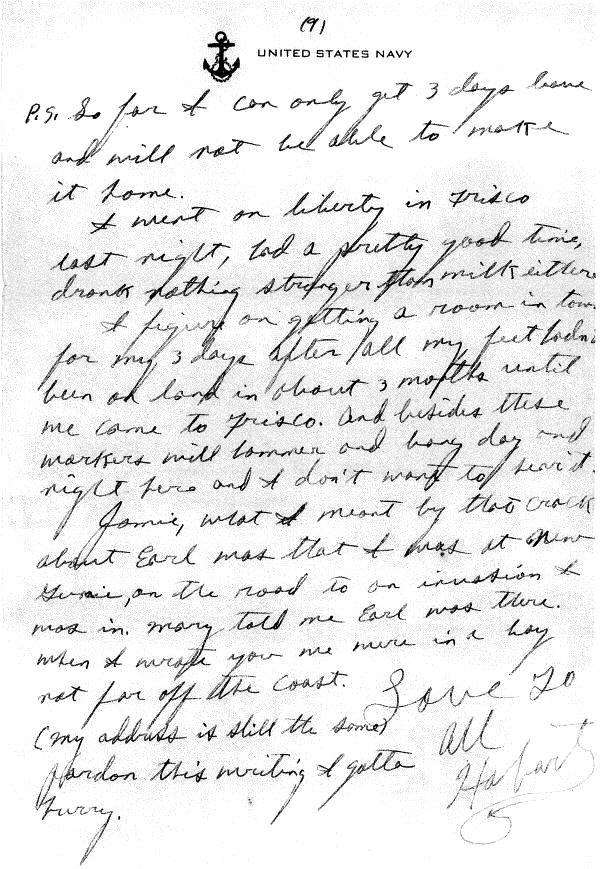 (9)
UNITED STATES NAVY
P.S. So far I can only get 3 days leave
and will not be able to make
it home.
I went on liberty in Frisco
last night, had a pretty good time,
drank nothing stronger than milk either
I figure on getting a room in town
for my 3 days after all my feet hadn't
been on land in about 3 months until
we came to Frisco. And besides these
workers will hammer and bang day and
night here and I don't want to hear it.
Jamie, what I meant by that crack
about Earl was that I was at New
Gunie, on the road to an invasion I
was in. Mary told me Earl was there.
when I wrote you we were in a bay
not far off the coast.
Love to
all
(my address is still the same)
pardon this writing I gotta
hurry.